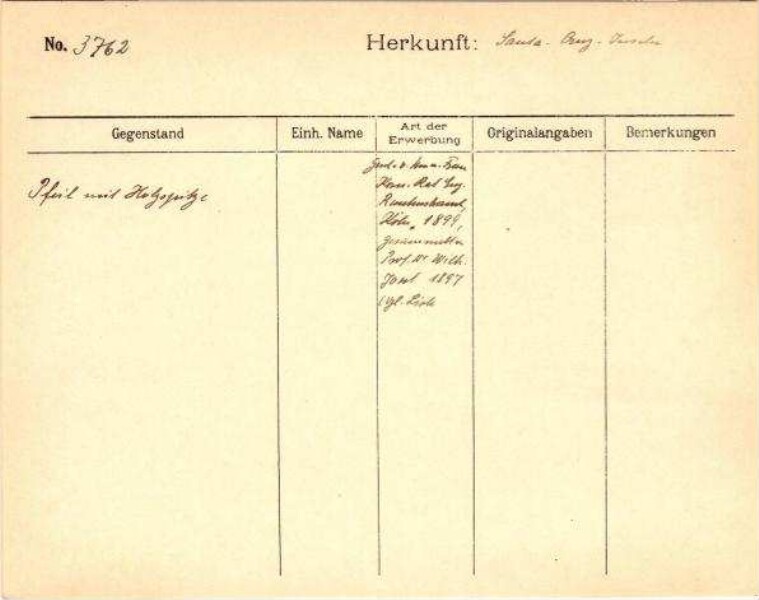 No. 3762
Herkunft: Santa-Cruz-Inseln
Gegenstand
Einh. Name
Art der Erwerbung
Originalangaben
Bemerkungen
Pfeil mit Holzspitze
Gesch. v.
Kom. Rat Eug.
Rautenstrauch,
Köln, 1899,
gesammelt v.
Prof. Dr Wilh.
Joest 1897
(vgl. Liste